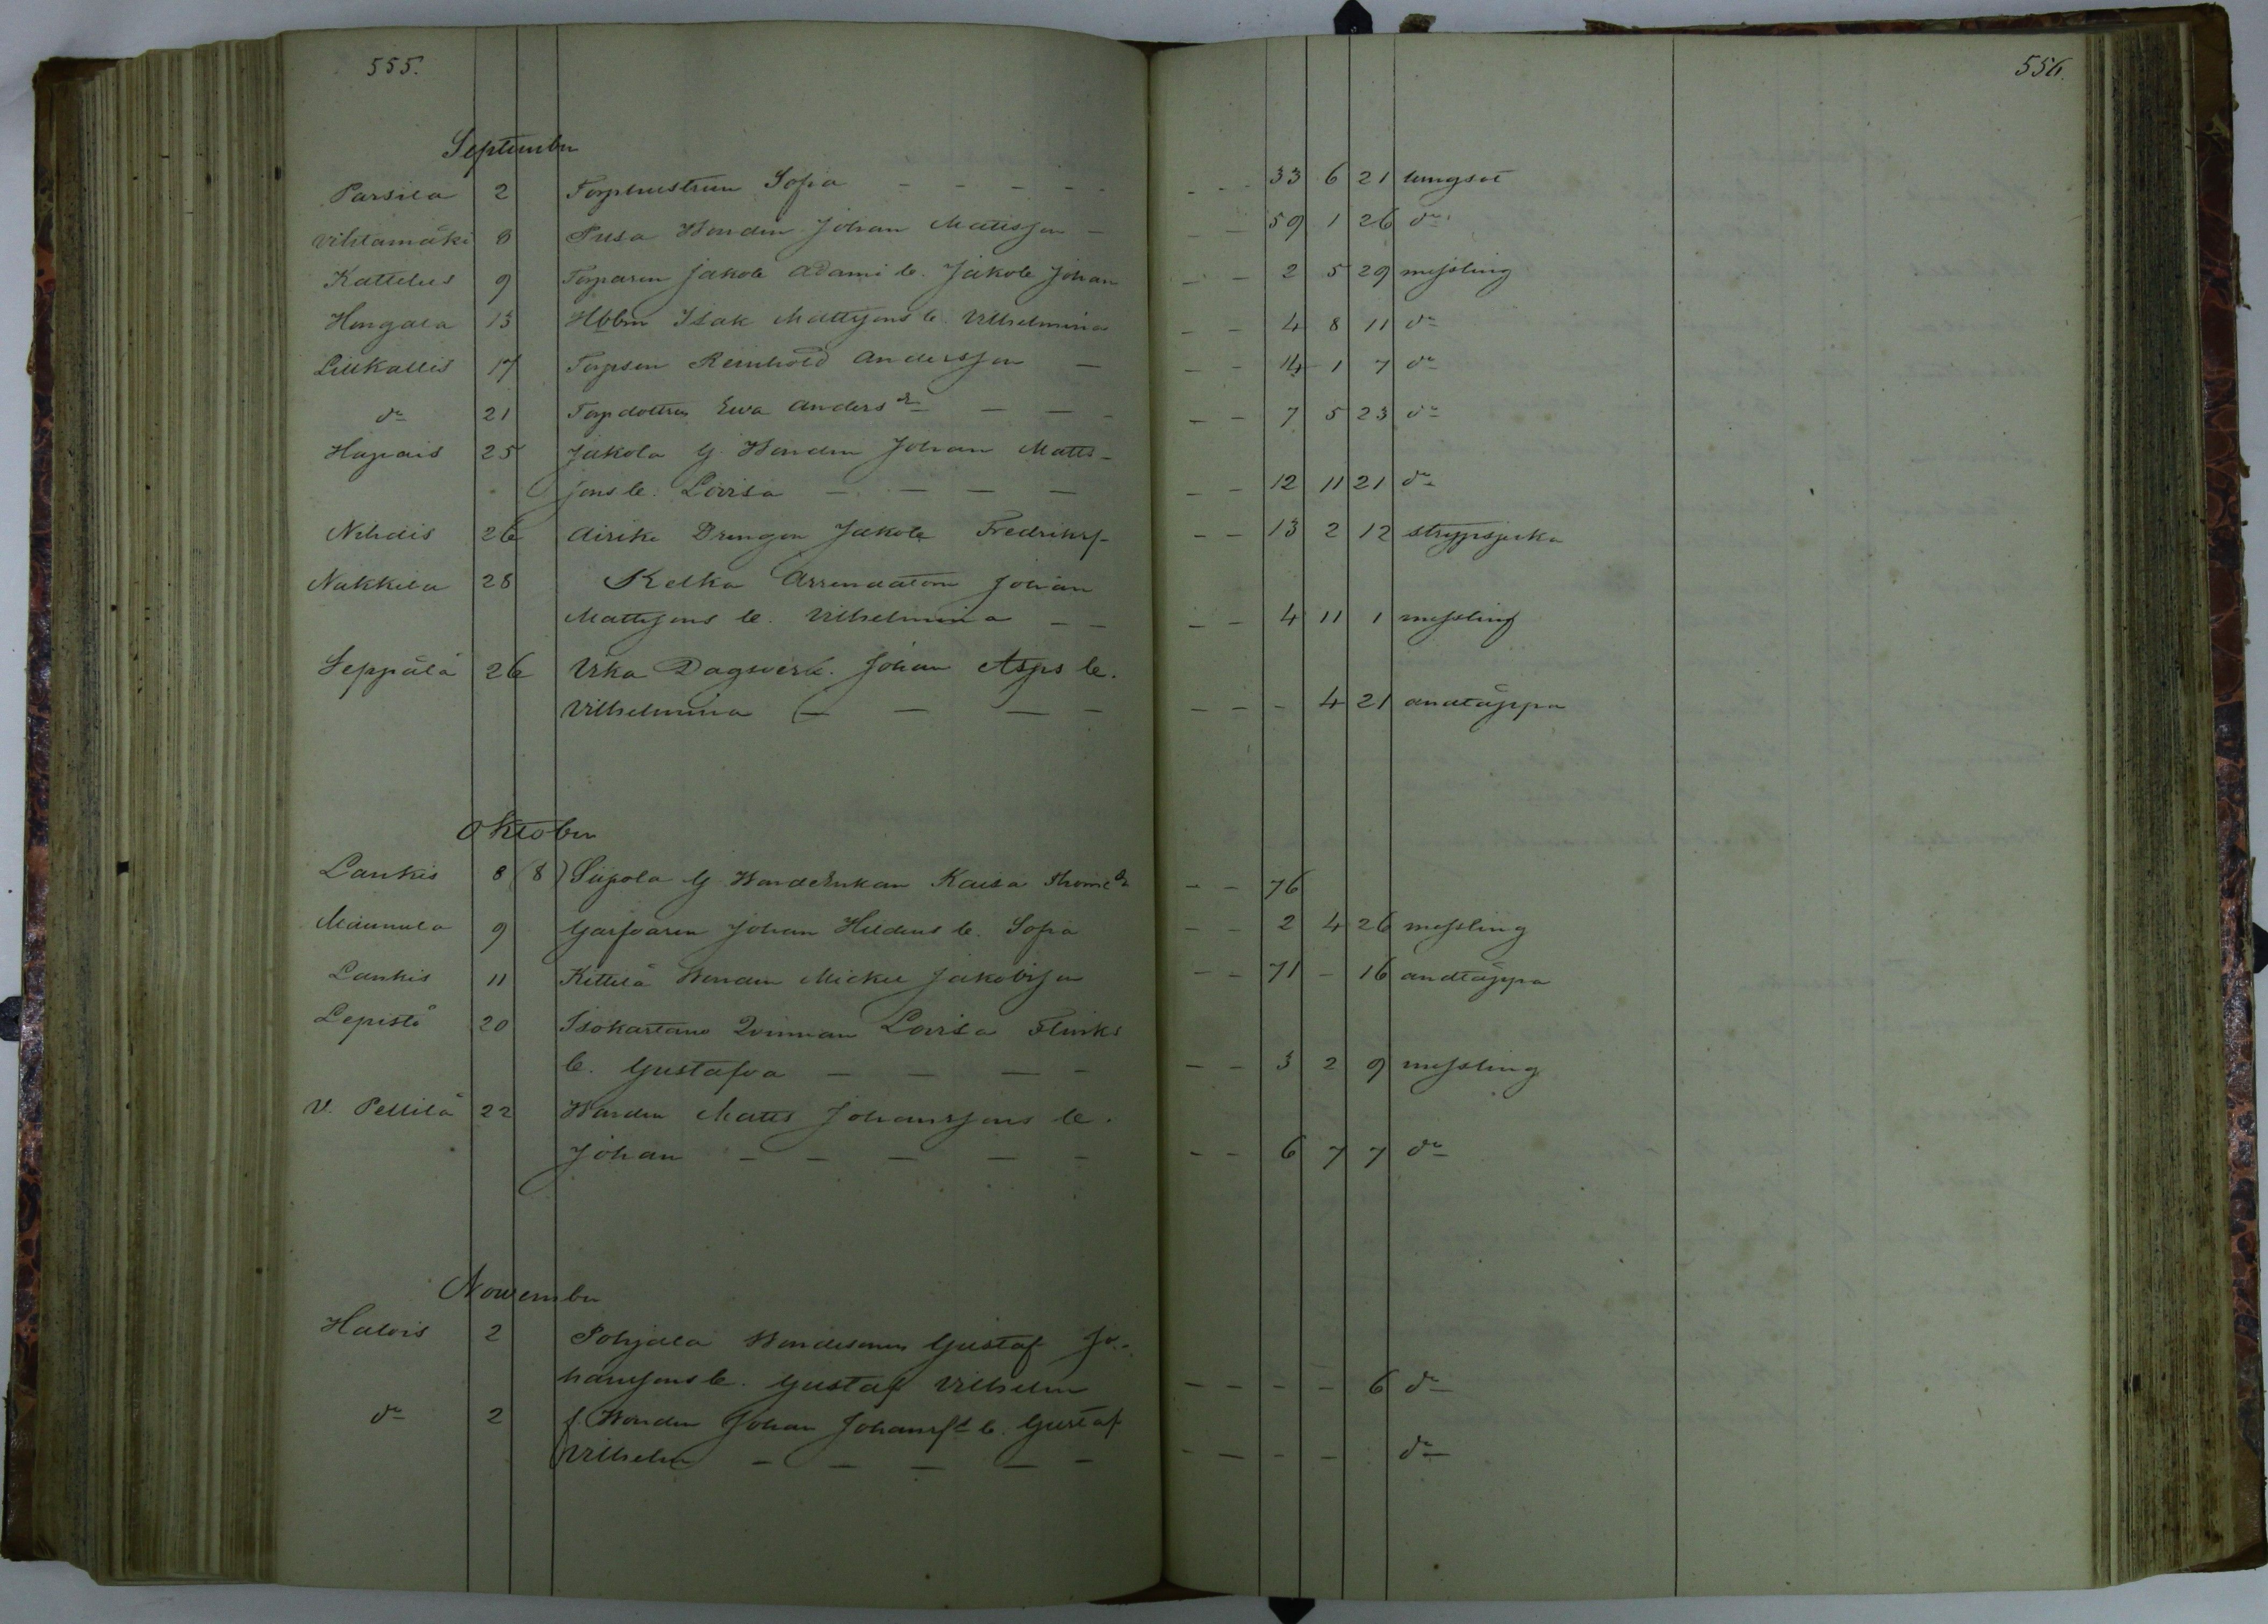 555.
556.
September
Parsila 2 Torphustrun Sofia - - - - - - - 33 6 21 lungsot
Vihtamäki 8 Pusa Bonden Johan Matisson - - - 59 1 26 do
Kattelus 9 Torparen Jakob Adami b. Jakob Johan - - 2 5 29 messling
Hongala 13 Hbbrn Isak Mattssons b. Vilhelmina - - 4 8 11 do
Lillkallis 17 Torpson Reinhold Andersson - - - 14 1 7 do
do 21 Torpdottren Ewa Andersdr - - - - - 7 5 23 do
Hapais 25 Jakola G. Bonden Johan Matts-
sons b. Lovisa - - - - - - 12 11 21 do
Nihdis 26 Airike Drengen Jakob Fredriksf - - 13 2 12 strypsjuka
Nakkila 28 Kelka Arrendatorn Johan
Mattssons b. Vilhelmina - - - - 4 11 1 messling
Seppälä 26 Uka Dagsverk. Johan Asps b.
Vilhelmina - - - - - - - 4 21 andtäppa
Oktober
Lankis 8 (8) Siipola G. Bondeenkan Kaisa Thome dr - - 76
Maunula 9 Garfvaren Johan Hildens b. Sofia - - 2 4 26 messling
Lankis 11 Kittilä Bonden Mickel Jakobsson - - 71 - 16 andtäppa
Lepistö 20 Isokartano Qvinnan Lovisa Flinks
b. Gustafva - - - - - - 3 2 9 messling
V. Pellilä 22 Bonden Matts Johanssons b.
Johan - - - - - - - 6 7 7 do
November
Halois 2 Pohjala Bondesonen Gustaf Jo-
hanssons b. Gustaf Vilhelm - - - - 6 do
do 2 f. Bonden Johan Johansss b. Gustaf
Vilhelm - - - - - - - - - do